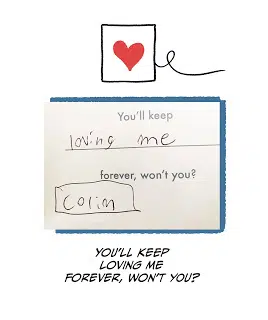 You'll keep
loving me
forever, won't you?
Colin
YOU'LL KEEP
LOVING ME
FOREVER, WON'T YOU?